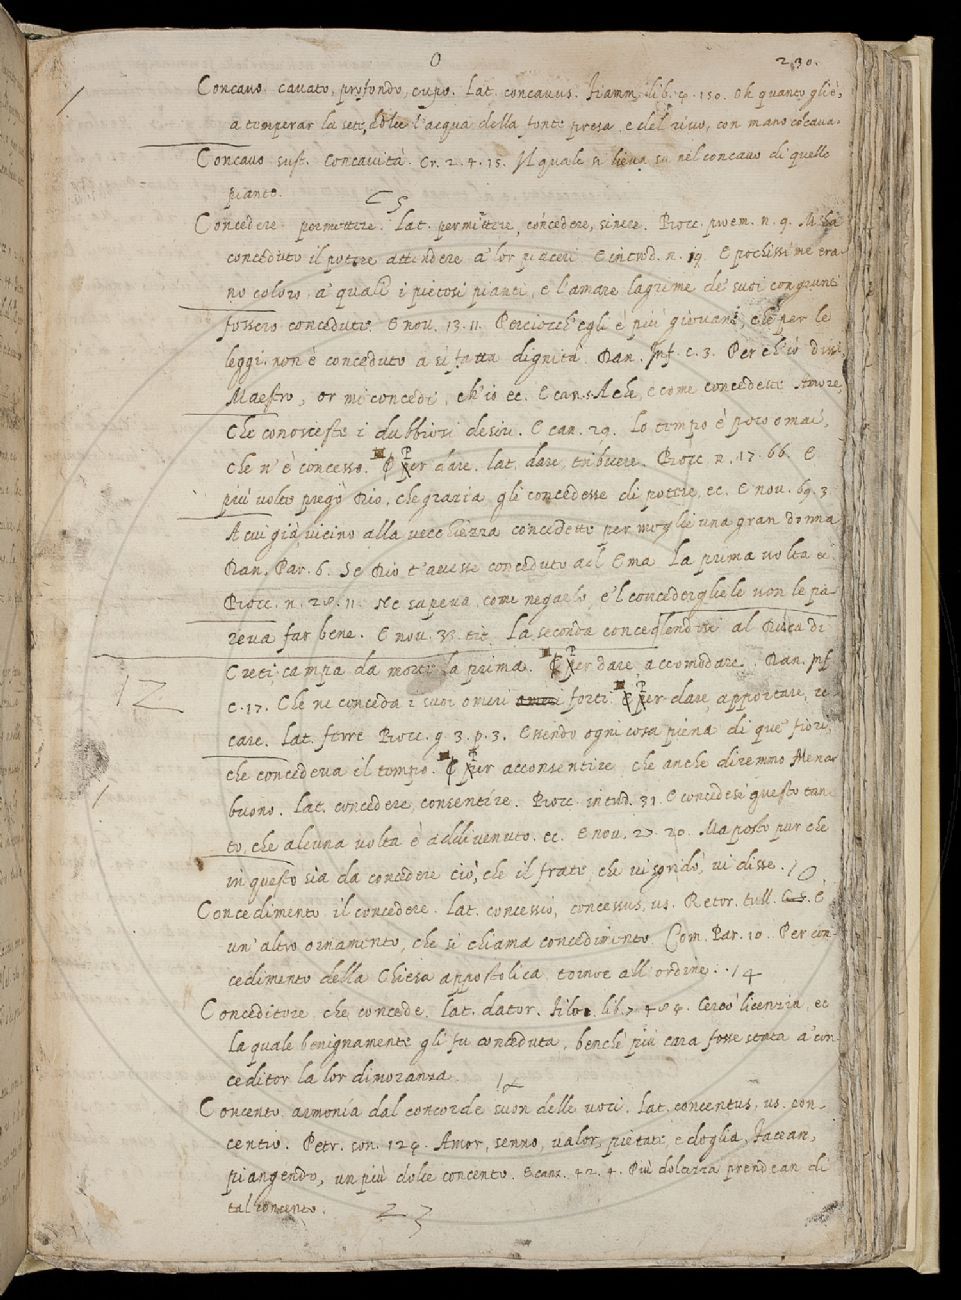 0
230.
Concavo. cavato, profondo, cupo. Lat. concavus. Fiamm. lib. 4. 150. Oh quanto gli è,
a temperar la sete, dolce l'acqua della fonte presa, e del rivo, con mano cõcava.
Concavo sust. Concavità. Cr. 2. 4. 15. Il quale si lieva su nel concavo di quelle
piante.
Concedere. permettere. Lat. permittere, concedere, sinere. Bocc. proem. n. 9. Mi ha
conceduto il potere attendere a' lor piaceri. E introd. n. 19. E pochissimi era-
no coloro, a' quali i pietosi pianti, e l'amare lagrime de' suoi congiunti
fossero conceduti. E nov. 13. 11. Perciocch' egli è più giovane, che per le
leggi non è conceduto a sì fatta dignità. Dan. Inf. c. 3. Perch' io dissi,
Maestro, or mi concedi, ch'io ec. E can. 5. A che, e come concedette Amore,
Che conosceste i dubbiosi desiri. E can. 29. Lo tempo è poco omai,
Che n' è concesso. Per dare. lat. dare, tribuere. Bocc. n. 17. 66. E
più volte pregò Dio, che grazia gli concedesse di potere, ec. E nov. 69. 3.
A cui già vicino alla vecchiezza concedette per moglie una gran donna
Dan. Par. 6. Se Dio t'avesse conceduto ad Ema La prima volta ec.
Bocc. n. 28. 11. Ne sapeva come negarlo, e'l concedergliele non le pa-
reva far bene. E nov. 33. tit. La seconda concedendosi al Duca di
Creti campa da morte la prima. Per dare, accomodare. Dan. Inf.
c. 17. Che ne conceda i suoi omeri forti. Per dare, apportare, re-
care. Lat. ferre Bocc. g. 3. p. 3. Essendo ogni cosa piena di que' fiori,
che concedeva il tempo. Per acconsentire, che anche diremmo Menar
buono. Lat. concedere, consentire. Bocc. introd. 31. E concedesi questo tan-
to, che alcuna volta è addivenuto. ec. E nov. 27. 20. Ma posto pur che
in questo sia da concedere ciò, che il frate, che vi sgridò, vi disse. 10
Concedimento. il concedere. Lat. concessio, concessus, us. Retor. tull. E
un' altro ornamento, che si chiama concedimento. Com. Par. 10. Per con-
cedimento della Chiesa appostolica, tornoe all' ordine. 14
Conceditore. che concede. Lat. dator. Filoc. lib. 7. 484. Cercò licenzia, ec
la quale benignamente gli fu conceduta, benchè più cara fosse stata a' con-
ceditor la lor dimoranza. 12
Concento. armonia dal concorde suon delle voci. Lat. concentus, us. con-
centio. Petr. son. 124. Amor, senno, valor, pietate, e doglia, Facean,
piangendo, un più dolce concento. E canz. 42. 4. Più dolcezza prendean di
tal concento. 23
12